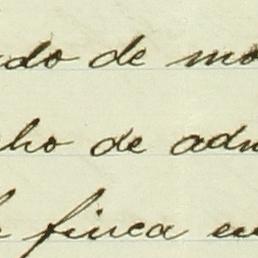 ado de mo
cho de adm
finca en